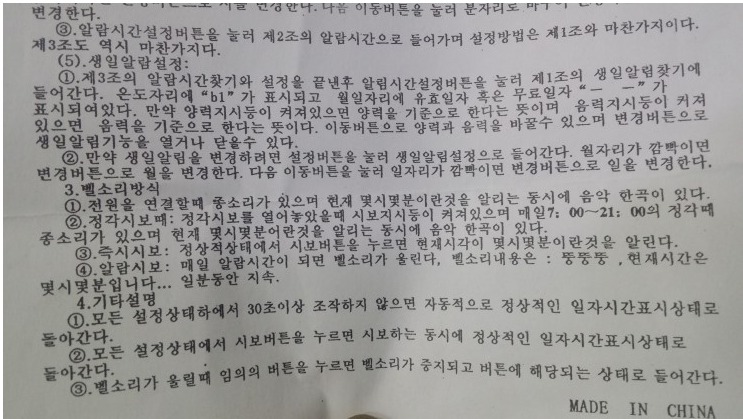 변경한다. 다음 이동버튼을 눌러 분자리로
③.알람시간설정버튼을 눌러 제2조의 알람시간으로 들어가며 설정방법은 제1조와 마찬가지이다.
제3조도 역시 마찬가지다.
(5).생일알람설정:
①.제3조의 알람시간찾기와 설정을 끝낸후 알림시간설정버튼을 눌러 제1조의 생일알람찾기에
들어간다. 온도자리에 “b1”가 표시되고 월일자리에 유효일자 혹은 무료일자 “— —”가
표시되여있다. 만약 양력지시등이 켜져있으면 양력을 기준으로 한다는 뜻이며 음력지시등이 켜져
있으면 음력을 기준으로 한다는 뜻이다. 이동버튼으로 양력과 음력을 바꿀수 있으며 변경버튼으로
생일알림기능을 열거나 닫을수 있다.
②.만약 생일알림을 변경하려면 설정버튼을 눌러 생일알림설정으로 들어간다. 월자리가 깜빡이면
변경버튼으로 월을 변경한다. 다음 이동버튼을 눌러 일자리가 깜빡이면 변경버튼으로 일을 변경한다.
3.벨소리방식
①.전원을 연결할때 종소리가 있으며 현재 몇시몇분이란것을 알리는 동시에 음악 한곡이 있다.
②.정각시보때: 정각시보를 열어놓았을때 시보지시등이 켜져있으며 매일7: 00～21: 00의 정각때
종소리가 있으며 현재 몇시몇분이란것을 알리는 동시에 음악 한곡이 있다.
③.즉시시보: 정상적상태에서 시보버튼을 누르면 현재시각이 몇시몇분이란것을 알린다.
④.알람시보: 매일 알람시간이 되면 벨소리가 울린다, 벨소리내용은 : 뚱뚱뚱 ,현재시간은
몇시몇분입니다... 일분동안 지속.
4.기타설명
①.모든 설정상태하에서 30초이상 조작하지 않으면 자동적으로 정상적인 일자시간표시상태로
돌아간다.
②.모든 설정상태에서 시보버튼을 누르면 시보하는 동시에 정상적인 일자시간표시상태로
돌아간다.
③.벨소리가 울릴때 임의의 버튼을 누르면 벨소리가 중지되고 버튼에 해당되는 상태로 들어간다.
MADE IN CHINA